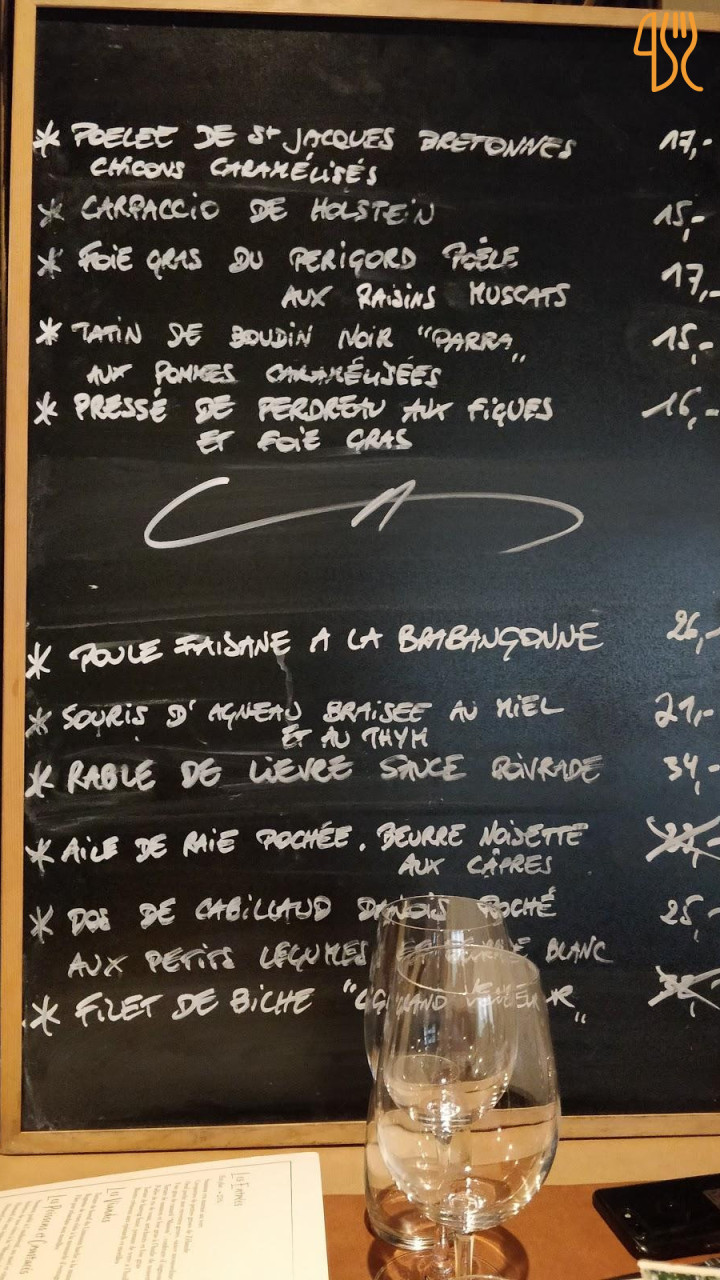 * POELEE DE St JACQUES BRETONNES 17,-
CHICONS CARAMÉLISÉS
* CARPACCIO DE HOLSTEIN 15,-
* FOIE GRAS DU PERIGORD POÊLE
AUX RAISINS MUSCATS 17,-
* TATIN DE BOUDIN NOIR "PARRA" 15,-
AUX POMMES CARAMÉLISÉES
* PRESSÉ DE PERDREAU AUX FIGUES 16,-
ET FOIE GRAS
* POULE FAISANE A LA BRABANÇONNE 26,-
* SOURIS D'AGNEAU BRAISEE AU MIEL 21,-
ET AU THYM
* RABLE DE LIEVRE SAUCE POIVRADE 34,-
* AILE DE RAIE POCHÉE. BEURRE NOISETTE
AUX CÂPRES
* DOS DE CABILLAUD DANOIS POCHÉ 25,-
AUX PETITS LEGUMES BLANC
* FILET DE BICHE GRAND VENEUR"
Les Entrées
Les Viandes
Les Poissons et Crustacés